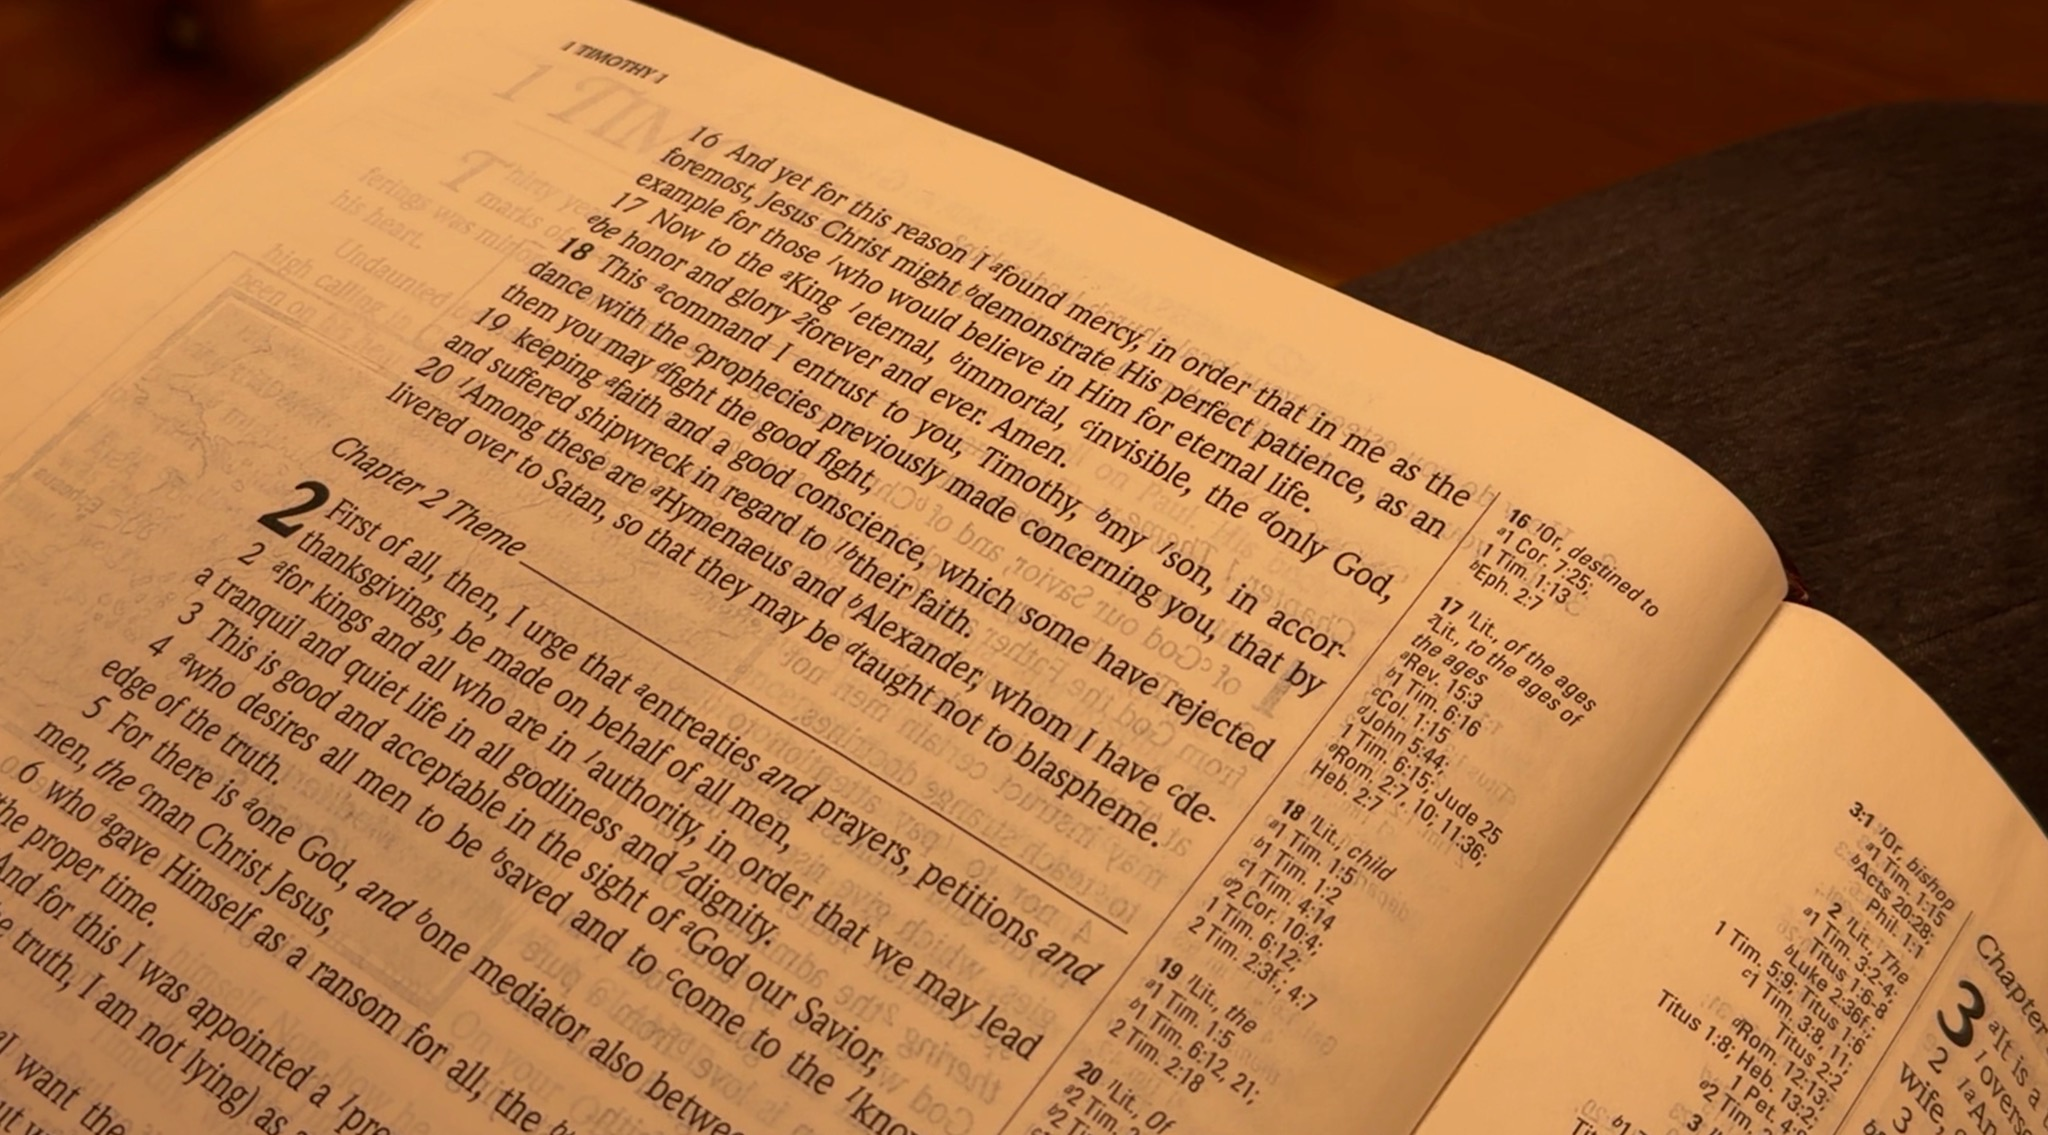 1 TIMOTHY 1
16 And yet for this reason I ᵃfound mercy, in order that in me as the
foremost, Jesus Christ might ᵇdemonstrate His perfect patience, as an
example for those ¹who would believe in Him for eternal life.
17 Now to the ᵃKing ¹eternal, ᵇimmortal, ᶜinvisible, the ᵈonly God,
ᵉbe honor and glory ²forever and ever. Amen.
18 This ᵃcommand I entrust to you, Timothy, ᵇmy ¹son, in accor-
dance with the ᶜprophecies previously made concerning you, that by
them you may ᵈfight the good fight,
19 keeping ᵃfaith and a good conscience, which some have rejected
and suffered shipwreck in regard to ¹ᵇtheir faith.
20 ¹Among these are ᵃHymenaeus and ᵇAlexander, whom I have ᶜde-
livered over to Satan, so that they may be ᵈtaught not to blaspheme.
Chapter 2 Theme
2 First of all, then, I urge that ᵃentreaties and prayers, petitions and
thanksgivings, be made on behalf of all men,
2 ᵃfor kings and all who are in ¹authority, in order that we may lead
a tranquil and quiet life in all godliness and ²dignity.
3 This is good and acceptable in the sight of ᵃGod our Savior,
4 ᵃwho desires all men to be ᵇsaved and to ᶜcome to the ¹know
edge of the truth.
5 For there is ᵃone God, and ᵇone mediator also betwee
men, the ᶜman Christ Jesus,
6 who ᵃgave Himself as a ransom for all, the
the proper time.
And for this I was appointed a ¹pre
truth, I am not lying) as
want the
16 ¹Or, destined to
ᵃ1 Cor. 7:25;
1 Tim. 1:13
ᵇEph. 2:7
17 ¹Lit., of the ages
²Lit., to the ages of
the ages
ᵃRev. 15:3
ᵇ1 Tim. 6:16
ᶜCol. 1:15
ᵈJohn 5:44;
1 Tim. 6:15; Jude 25
ᵉRom. 2:7, 10; 11:36;
Heb. 2:7
18 ¹Lit., child
ᵃ1 Tim. 1:5
ᵇ1 Tim. 1:2
ᶜ1 Tim. 4:14
ᵈ2 Cor. 10:4;
1 Tim. 6:12;
2 Tim. 2:3f.; 4:7
19 ¹Lit., the
ᵃ1 Tim. 1:5
ᵇ1 Tim. 6:12, 21;
2 Tim. 2:18
20 ¹Lit., Of
ᵃ2 Tim.
ᵇ2 Tim.
3:1 ¹Or, bishop
ᵃ1 Tim. 1:15
ᵇActs 20:28;
Phil. 1:1
2 ¹Lit. The
ᵃ1 Tim. 3:2-4;
Titus 1:6-8
ᵇLuke 2:36f.;
1 Tim. 5:9; Titus 1:6
ᶜ1 Tim. 3:8, 11;
Titus 2:2
ᵈRom. 12:13;
Titus 1:8; Heb. 13:2;
1 Pet. 4:
ᵃ2 Tim.
3
Chapter
3 ᵃIt is a
¹overs
2 ¹ᵃAn
wife,
3